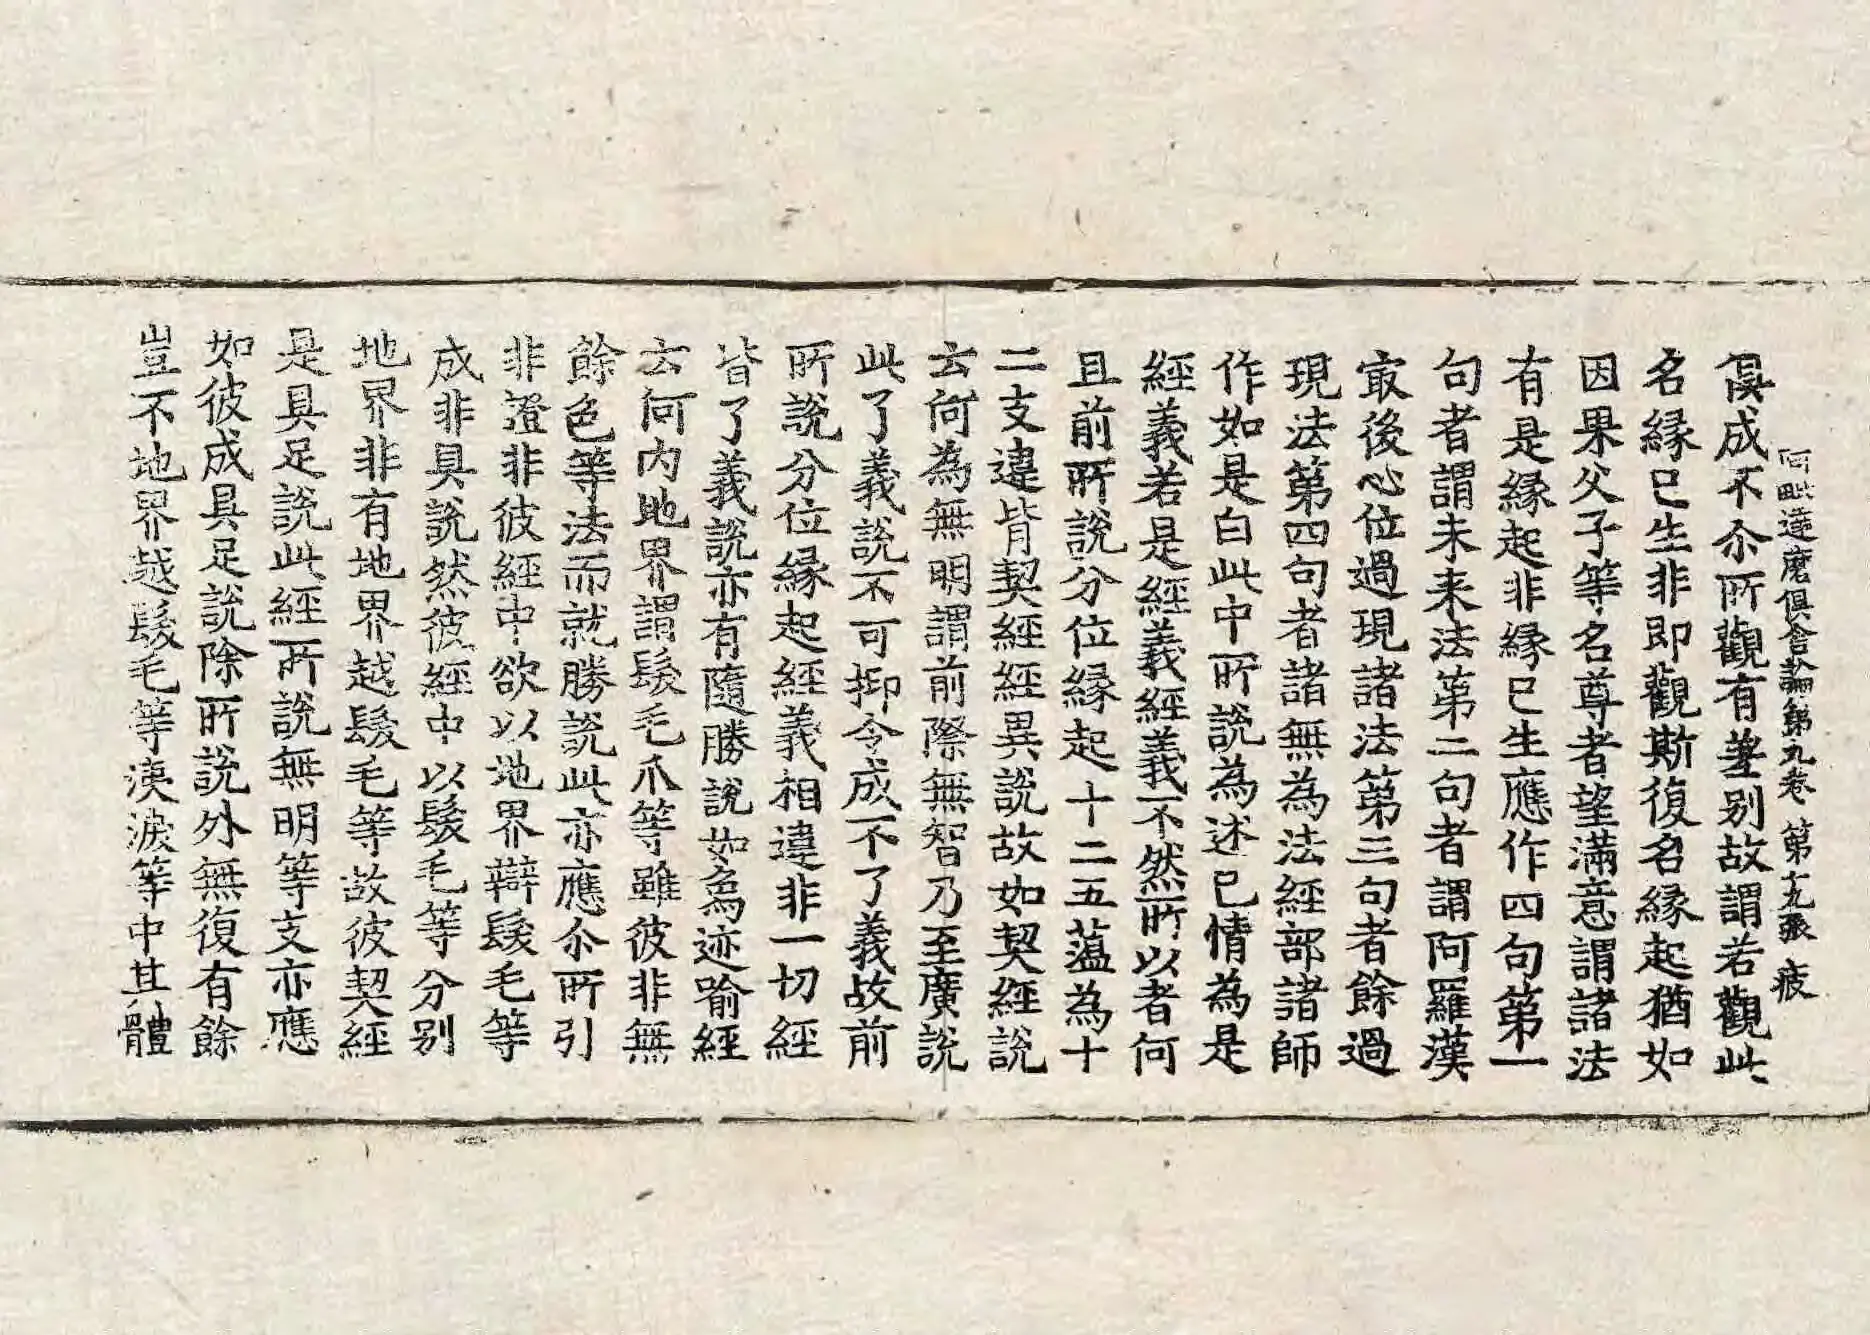 阿毗達磨俱舍論第九卷 第十九張 疲
俱成不尒所觀有差別故謂若觀此
名緣已生非即觀斯復名緣起猶如
因果父子等名尊者望滿意謂諸法
有是緣起非緣已生應作四句第一
句者謂未来法第二句者謂阿羅漢
㝡後心位過現諸法第三句者餘過
現法第四句者諸無為法經部諸師
作如是白此中所說為述已情為是
經義若是經義經義不然所以者何
且前所說分位緣起十二五蘊為十
二支違背契經經異說故如契經說
云何為無明謂前際無智乃至廣說
此了義說不可抑令成不了義故前
所說分位緣起經義相違非一切經
皆了義說亦有隨勝說如象迹喻經
云何內地界謂髮毛爪等雖彼非無
餘色等法而就勝說此亦應尒所引
非證非彼經中欲以地界辯髮毛等
成非具說然彼經中以髮毛等分別
地界非有地界越髮毛等故彼契經
是具足說此經所說無明等支亦應
如彼成具足說除所說外無復有餘
豈不地界越髮毛等洟淚等中其體